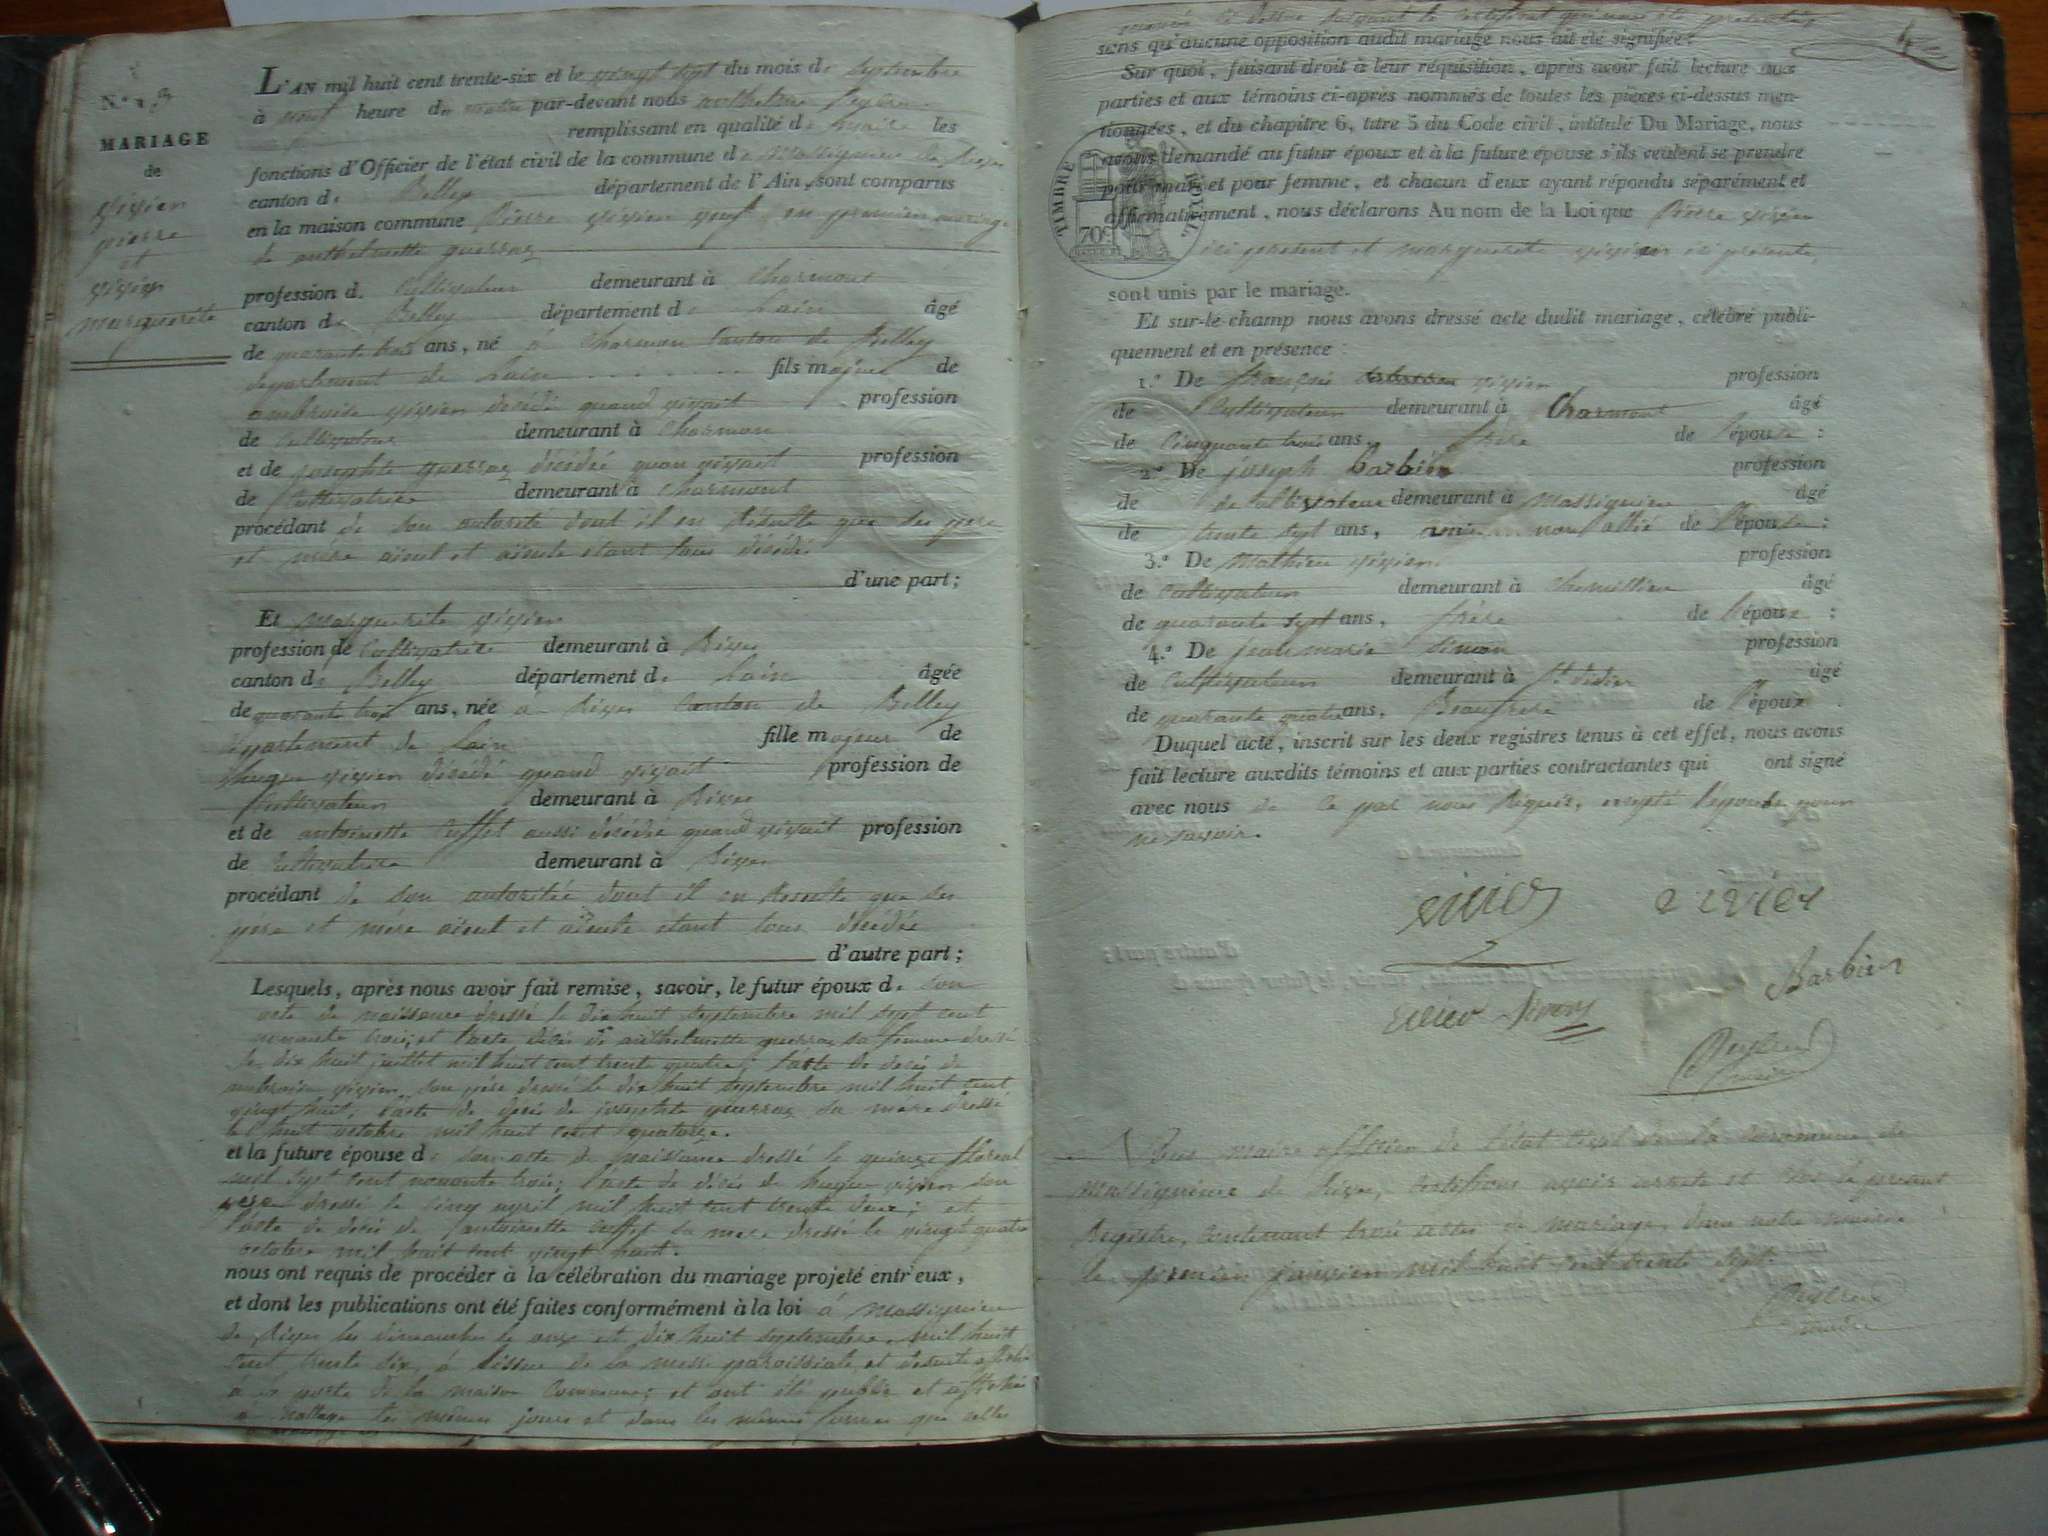 N.º 3.
MARIAGE
de
vivien
pierre
et
vivien
marguerite
L'AN mil huit cent trente-six et le vingt sept du mois de Septembre
à neuf heure du matin par-devant nous anthelme Peybrun
remplissant en qualité de maire les
fonctions d'Officier de l'état civil de la commune de Massignieu de Rives
canton de Belley département de l'Ain, sont comparus
en la maison commune Pierre vivien veuf en premier mariage
de anthelmette guerraz
profession de Cultivateur demeurant à Charmont
canton de Belley département de Lain âgé
de quarante trois ans, né à Charmon Canton de Belley
département de Lain fils majeur de
ambroise vivien décédé quand vivait profession
de Cultivateur demeurant à Charmon
et de josephte guerraz décédé quan vivait profession
de Cultivatrice demeurant à Charmont
procédant de son autorité dont il en résulte que ses père
et mère aieul et aieule etant tous décédé
d'une part;
Et Marguerite vivien
profession de Cultivatrice demeurant à Rives
canton de Belley département de Lain âgée
de quarante trois ans, née a Rives Canton de Belley
département de Lain fille majeur de
hugue vivien décédé quand vivait profession de
Cultivateur demeurant à Rives
et de antoinette Cuffet aussi décédé quand vivait profession
de Cultivatrice demeurant à Rives
procédant de son autoritée dont il en résulte que ses
père et mère aieul et aieule etant tous décédée
d'autre part;
Lesquels, après nous avoir fait remise, savoir, le futur époux de son
acte de naissance dressé le dix huit septembre mil sept cent
nonante trois; et l'acte décès de anthelmette guerraz sa femme dressé
le dix huit juillet mil huit cent trente quatre; l'acte de décès de
ambroise vivien son père dressé le dix huit septembre mil huit cent
vingt huit, l'acte de décès de josephte guerraz sa mère dressé
le huit octobre mil huit cent quatorze.
et la future épouse de son acte de naissance dressé le quinze floreal
mil sept cent nonante trois; l'acte de décès de hugue vivien son
père dressé le cinq avril mil huit cent trente deux; et
l'acte de décès de antoinette Cuffet sa mère dressé le vingt quatre
octobre mil huit cent vingt huit.
nous ont requis de procéder à la célébration du mariage projeté entr'eux,
et dont les publications ont été faites conformément à la loi à Massignieu
de Rives les dimanches le onze et dix huit septembre mil huit
cent trente six, à l'issue de la messe paroissiale, et ensuite affiché
à la porte de la maison Commune; et ont été publié et affiché
à les mêmes jours et dans les mêmes formes que celles
4
ci dessus suivant le certificat qui nous été présenté
sens qu'aucune opposition audit mariage nous ait été signifiée.
Sur quoi, faisant droit à leur réquisition, après avoir fait lecture aux
parties et aux témoins ci-après nommés de toutes les pièces ci-dessus men-
tionnées, et du chapitre 6, titre 5 du Code civil, intitulé Du Mariage, nous
avons demandé au futur époux et à la future épouse s'ils veulent se prendre
pour mari et pour femme, et chacun d'eux ayant répondu séparément et
affirmativement, nous déclarons Au nom de la Loi que Pierre vivien
ici présent et marguerit vivien ici présente,
TIMBRE ROYAL
70c
sont unis par le mariage.
Et sur-le-champ nous avons dressé acte dudit mariage, célébré publi-
quement et en présence :
1.º De françois vivien profession
de Cultivateur demeurant à Charmont âgé
de Cinquante trois ans, frère de l'épouse :
2.º De joseph Barbier profession
de de Cultivateur demeurant à Massignieu âgé
de trente sept ans, ami non allié de l'épouse :
3.º De Mathieu vivien profession
de Cultivateur demeurant à Chemillieu âgé
de quarante sept ans, frère de l'épouse :
4.º De jean marie Simon profession
de Cultivateur demeurant à St didier âgé
de quarante quatre ans, Beaufrere de l'époux.
Duquel acte, inscrit sur les deux registres tenus à cet effet, nous avons
fait lecture auxdits témoins et aux parties contractantes qui ont signé
avec nous de ce par nous Requis, excepté l'épouse pour
ne savoir.
vivien vivien
Barbier
vivien Simon
Peybrun
maire
Nous maire officier de l'état civil de la commune de
Massignieu de Rives, certifions avoir arrêté et clos le présent
Registre, contenant trois actes de mariage, dans notre mairie
le premier janvier mil huit cent trente sept.
Peybrun
maire